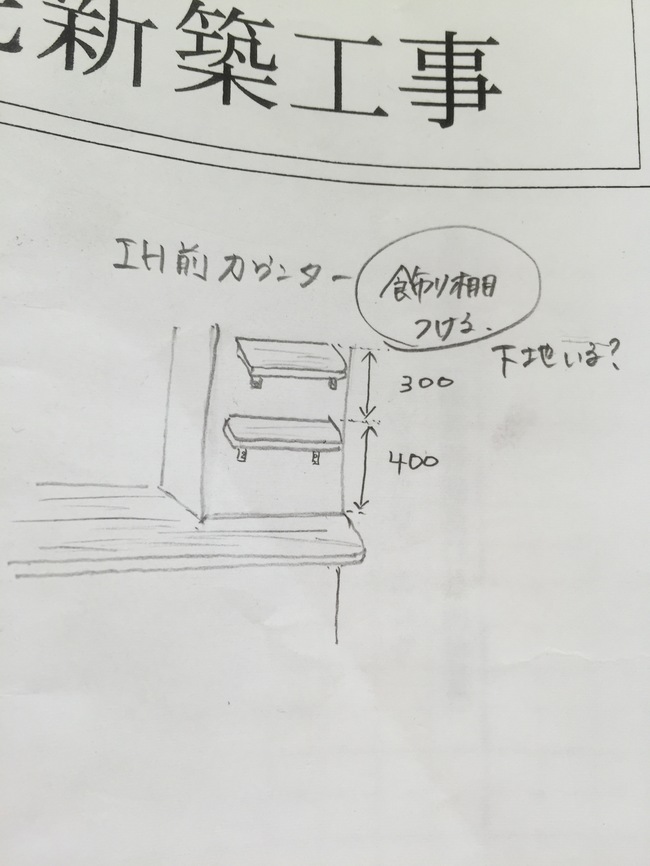 新築工事
IH前カウンター
飾り棚
つける.
下地いる?
300
400